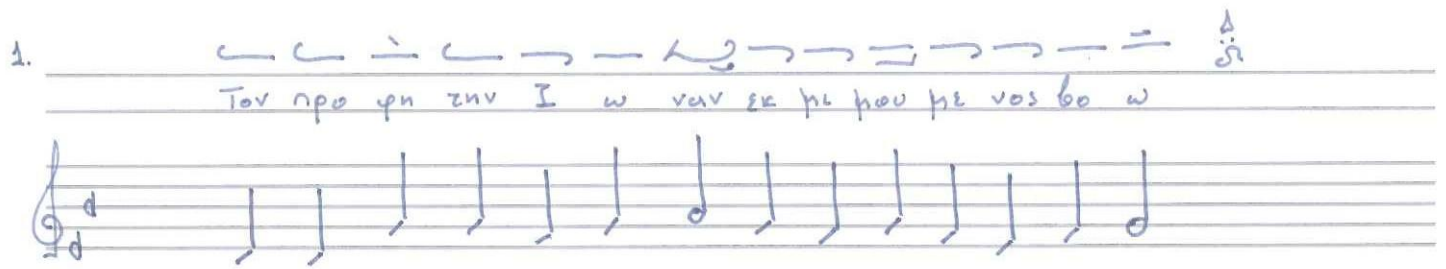 1.
Τον προ φη την Ι ω ναν εκ μι μου με νος βο ω